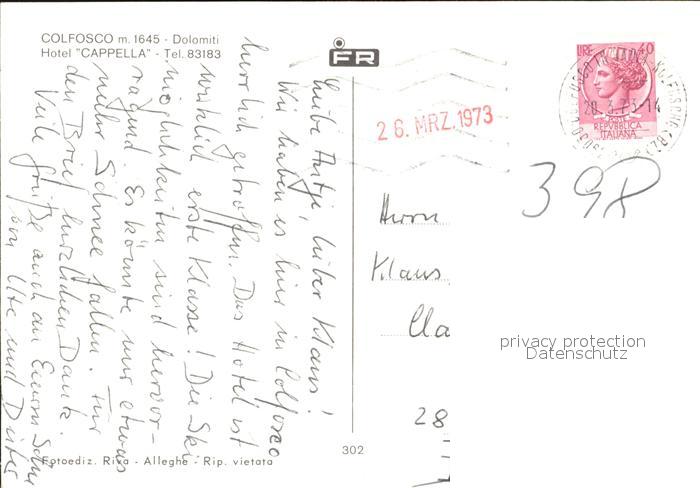 COLFOSCO m. 1645 - Dolomiti
Hotel "CAPPELLA" - Tel. 83183
Liebe Antje, lieber Klaus!
Wir haben es hier in Colfosco
herrlich getroffen. Das Hotel ist
wirklich erste Klasse! Die Ski-
möglichkeiten sind hervor-
ragend. Es könnte nur etwas
mehr Schnee fallen. Für
den Brief herzlichen Dank.
Viele Grüße auch an Euren Sohn
von Ute und Dieter
Fotoediz. Riva - Alleghe - Rip. vietata
FR
302
26. MRZ. 1973
LIRE 40
POSTE
REPVBBLICA
ITALIANA
20.3.73-14
398
Herrn
Klaus
Cla
28
privacy protection
Datenschutz